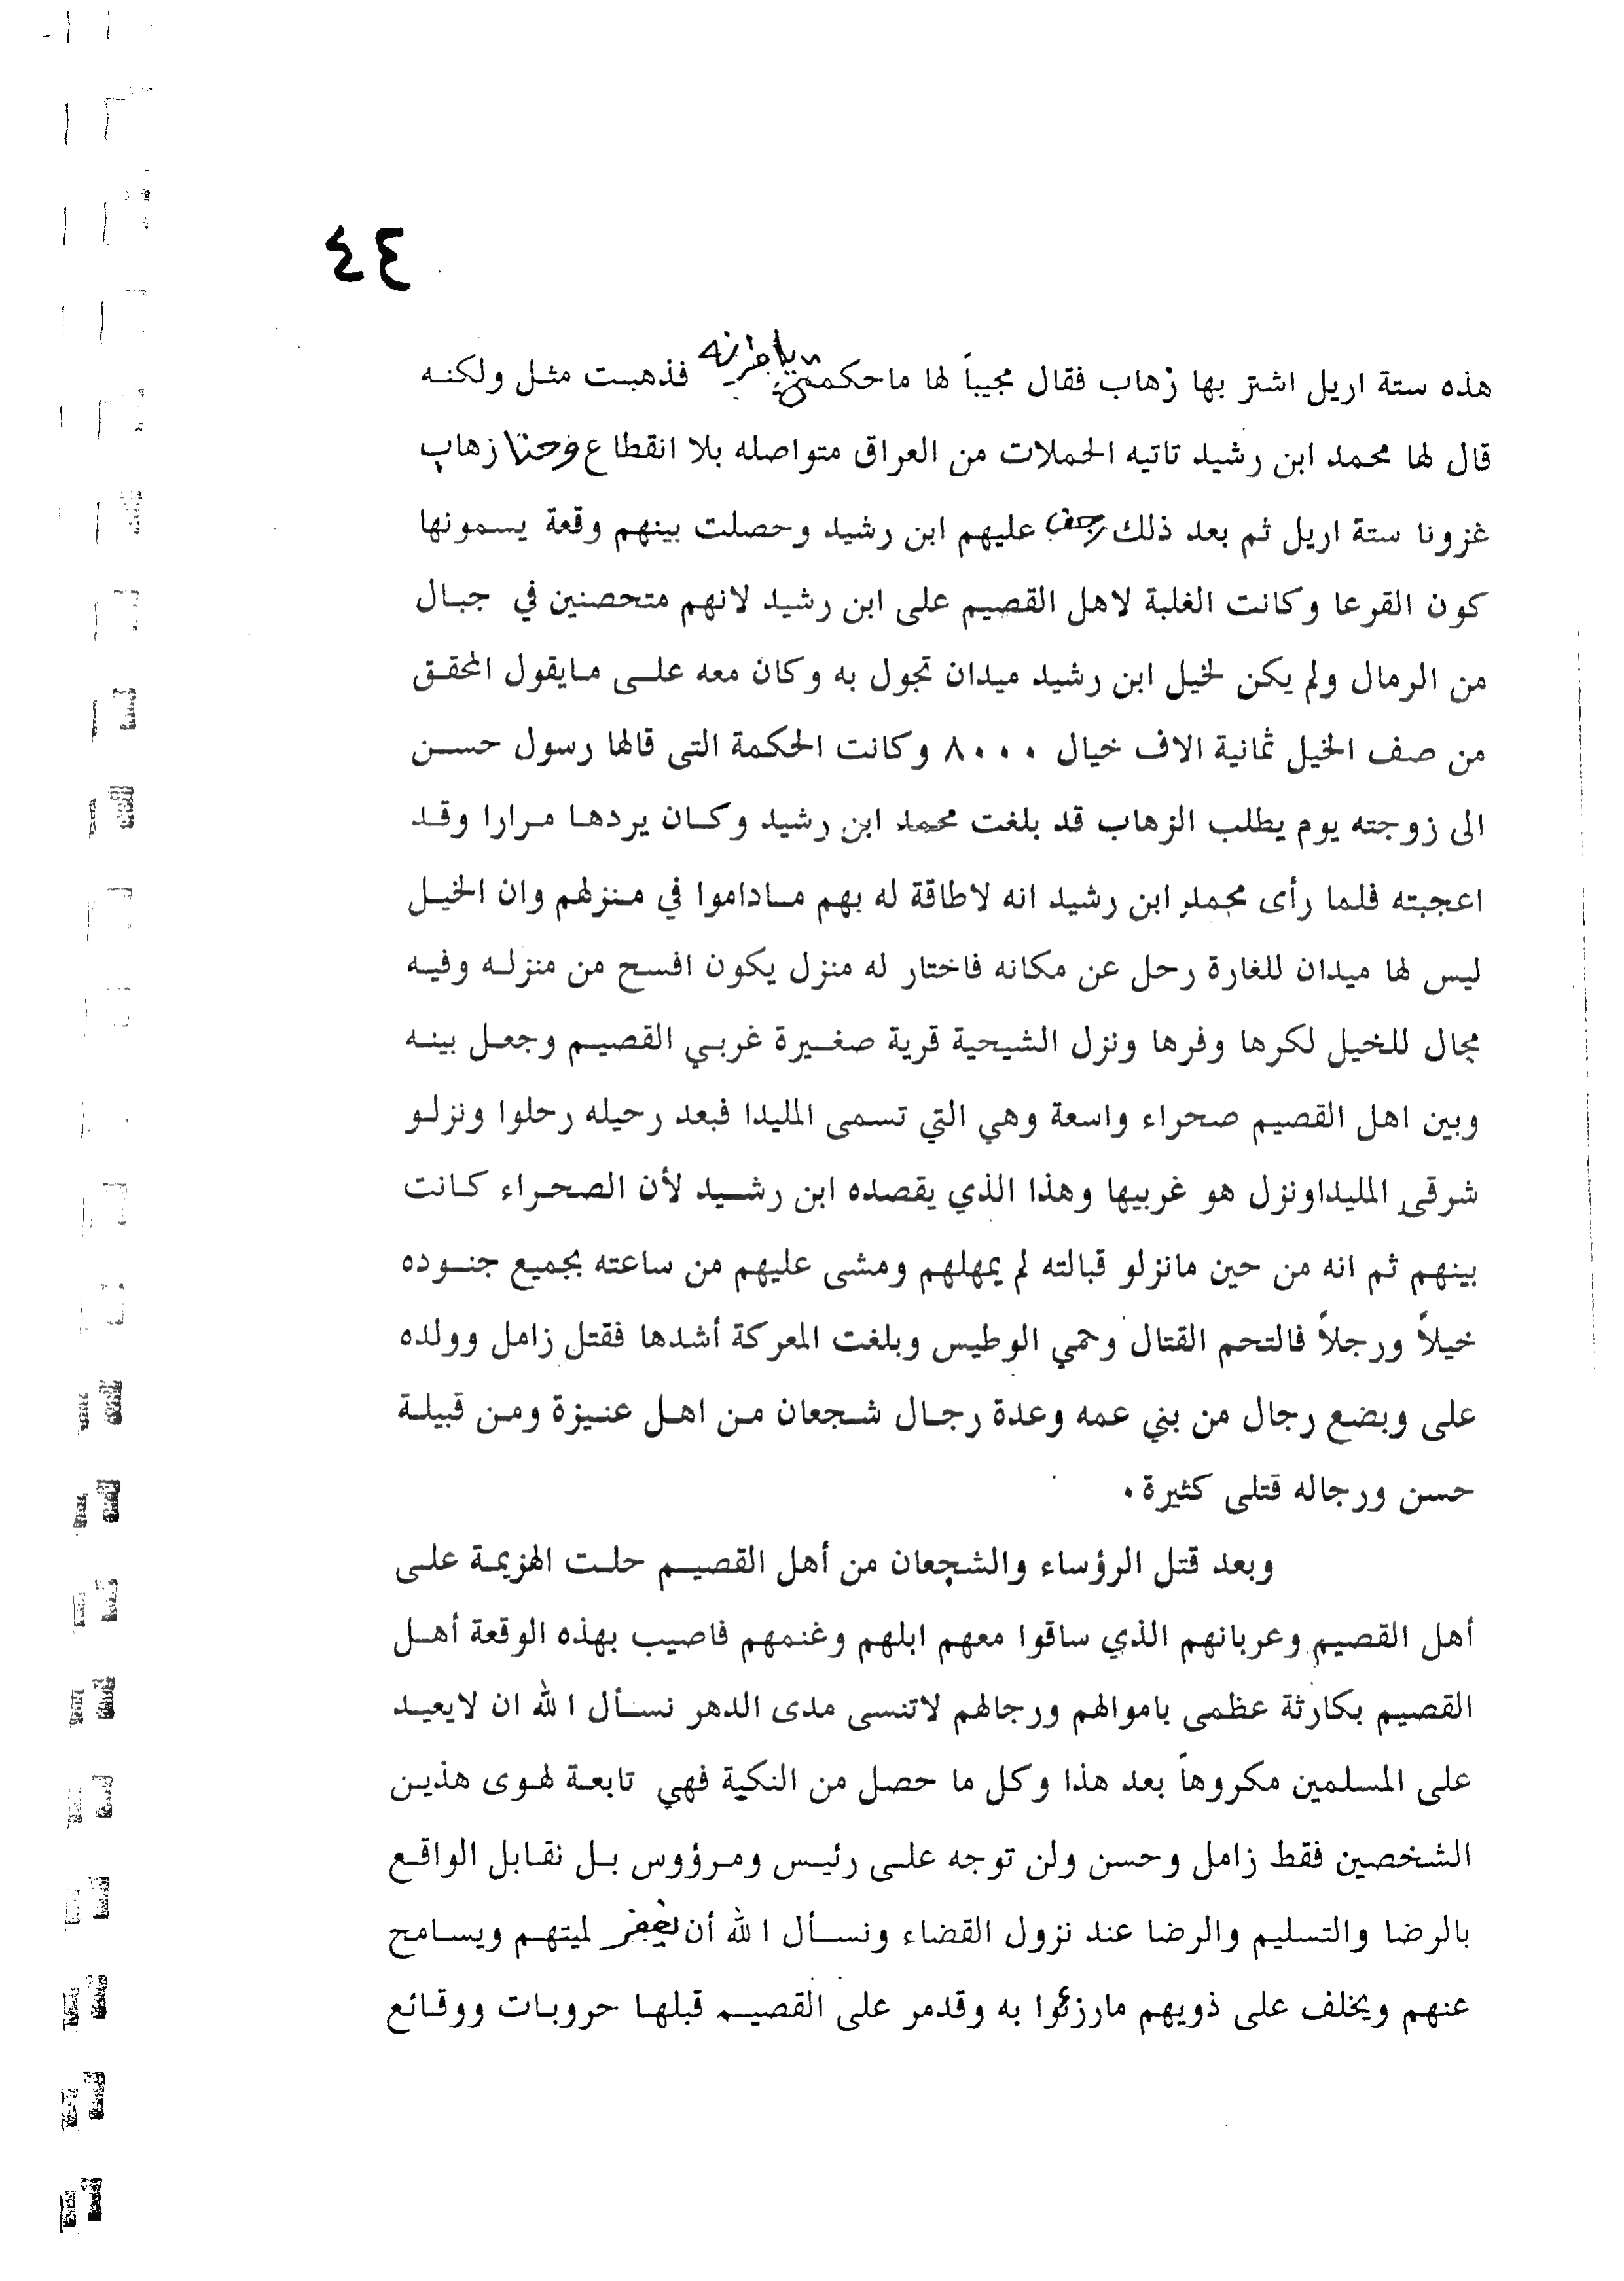 ٤٤
هذه ستة اريل اشتر بها زهاب فقال مجيباً لها ماحكمتي فذهبت مثل ولكنه
قال لها محمد ابن رشيد تاتيه الحملات من العراق متواصله بلا انقطاع وحنا زهاب
غزونا ستة اريل ثم بعد ذلك زحف عليهم ابن رشيد وحصلت بينهم وقعة يسمونها
كون القرعا وكانت الغلبة لاهل القصيم على ابن رشيد لانهم متحصنين في جبال
من الرمال ولم يكن لخيل ابن رشيد ميدان تجول به وكان معه على مايقول المحقق
من صف الخيل ثمانية الاف خيال ٨٠٠٠ وكانت الحكمة التى قالها رسول حسن
الى زوجته يوم يطلب الزهاب قد بلغت محمد ابن رشيد وكان يردها مرارا وقد
اعجبته فلما رأى محمد ابن رشيد انه لاطاقة له بهم ماداموا في منزلهم وان الخيل
ليس لها ميدان للغارة رحل عن مكانه فاختار له منزل يكون افسح من منزله وفيه
مجال للخيل لكرها وفرها ونزل الشيحية قرية صغيرة غربي القصيم وجعل بينه
وبين اهل القصيم صحراء واسعة وهي التي تسمى المليدا فبعد رحيله رحلوا ونزلو
شرقى المليداونزل هو غربيها وهذا الذي يقصده ابن رشيد لأن الصحراء كانت
بينهم ثم انه من حين مانزلو قبالته لم يمهلهم ومشى عليهم من ساعته بجميع جنوده
خيلاً ورجلاً فالتحم القتال وحمي الوطيس وبلغت المعركة أشدها فقتل زامل وولده
على وبضع رجال من بني عمه وعدة رجال شجعان من اهل عنيزة ومن قبيلة
حسن ورجاله قتلى كثيرة.
وبعد قتل الرؤساء والشجعان من أهل القصيم حلت الهزيمة على
أهل القصيم وعربانهم الذي ساقوا معهم ابلهم وغنمهم فاصيب بهذه الوقعة أهل
القصيم بكارثة عظمى باموالهم ورجالهم لاتنسى مدى الدهر نسأل الله ان لايعيد
على المسلمين مكروهاً بعد هذا وكل ما حصل من النكية فهي تابعة لهوى هذين
الشخصين فقط زامل وحسن ولن توجه على رئيس ومرؤوس بل نقابل الواقع
بالرضا والتسليم والرضا عند نزول القضاء ونسأل الله أن يغفر لميتهم ويسامح
عنهم ويخلف على ذويهم مارزئوا به وقدمر على القصيم قبلها حروبات ووقائع